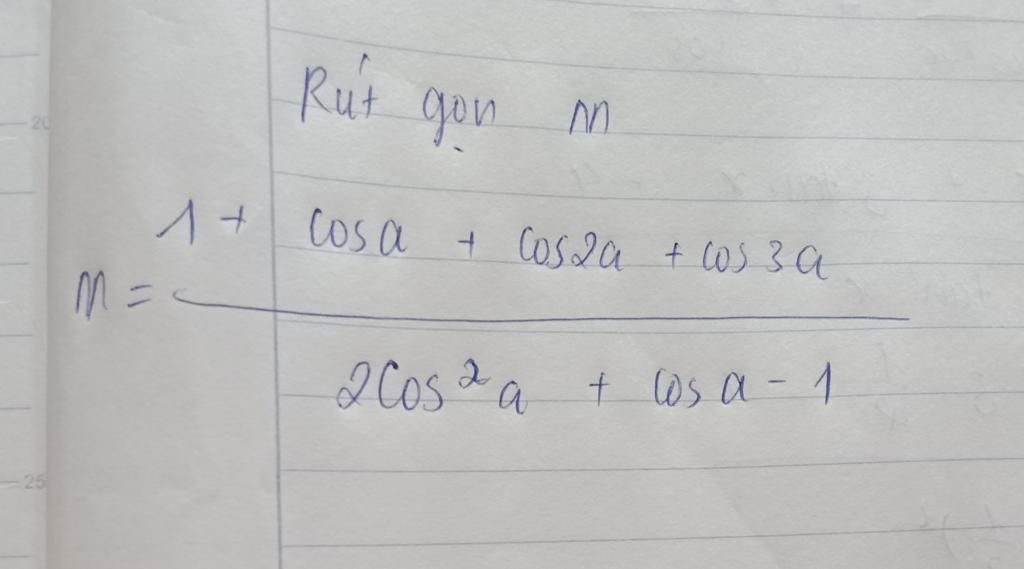 Rút gọn M
1 + cosa + cos2a + cos3a
M =
2cos²a + cos a - 1
20
25